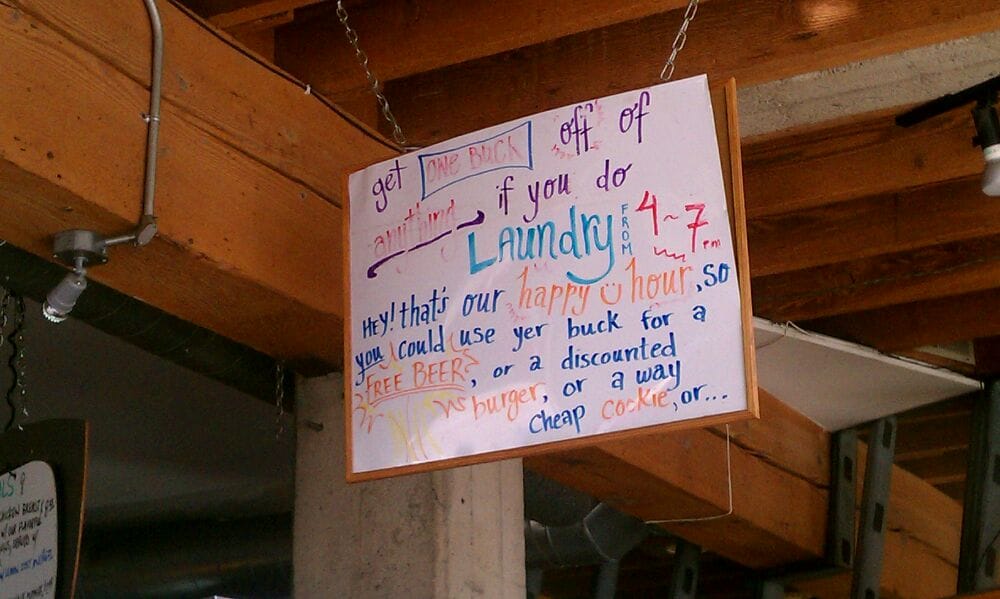 get one Buck off of
anything if you do
Laundry FROM 4~7pm
HEY! that's our happy hour, so
you could use yer buck for a
FREE BEER, or a discounted
burger, or a way
cheap cookie, or...